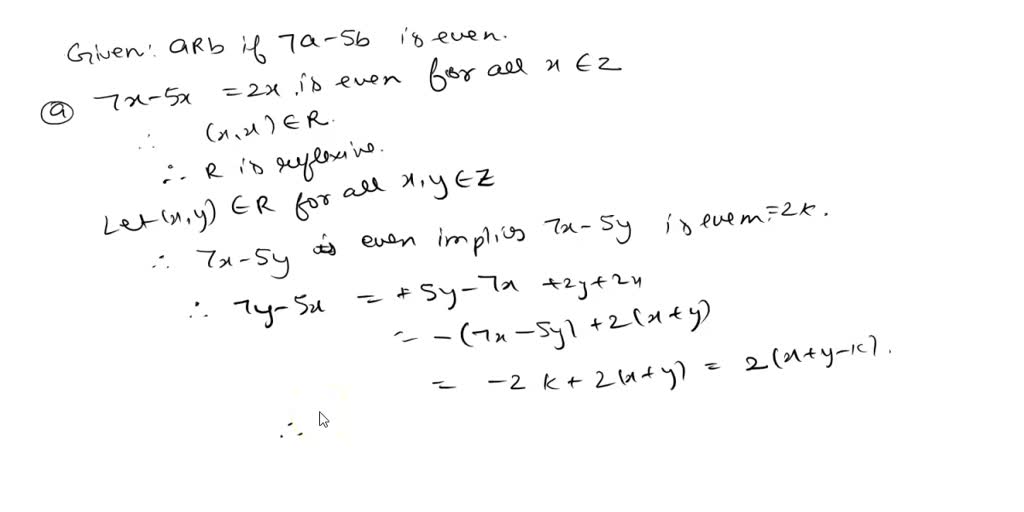 Given: aRb if 7a-5b is even.
ⓐ 7x-5x = 2x, is even for all x ∈ Z
∴ (x,x) ∈ R.
∴ R is reflexive.
Let (x,y) ∈ R for all x,y ∈ Z
∴ 7x-5y is even implies 7x-5y is even = 2k.
∴ 7y-5x = +5y-7x +2y+2x
= -(7x-5y) + 2(x+y)
= -2k + 2(x+y) = 2(x+y-k).
∴